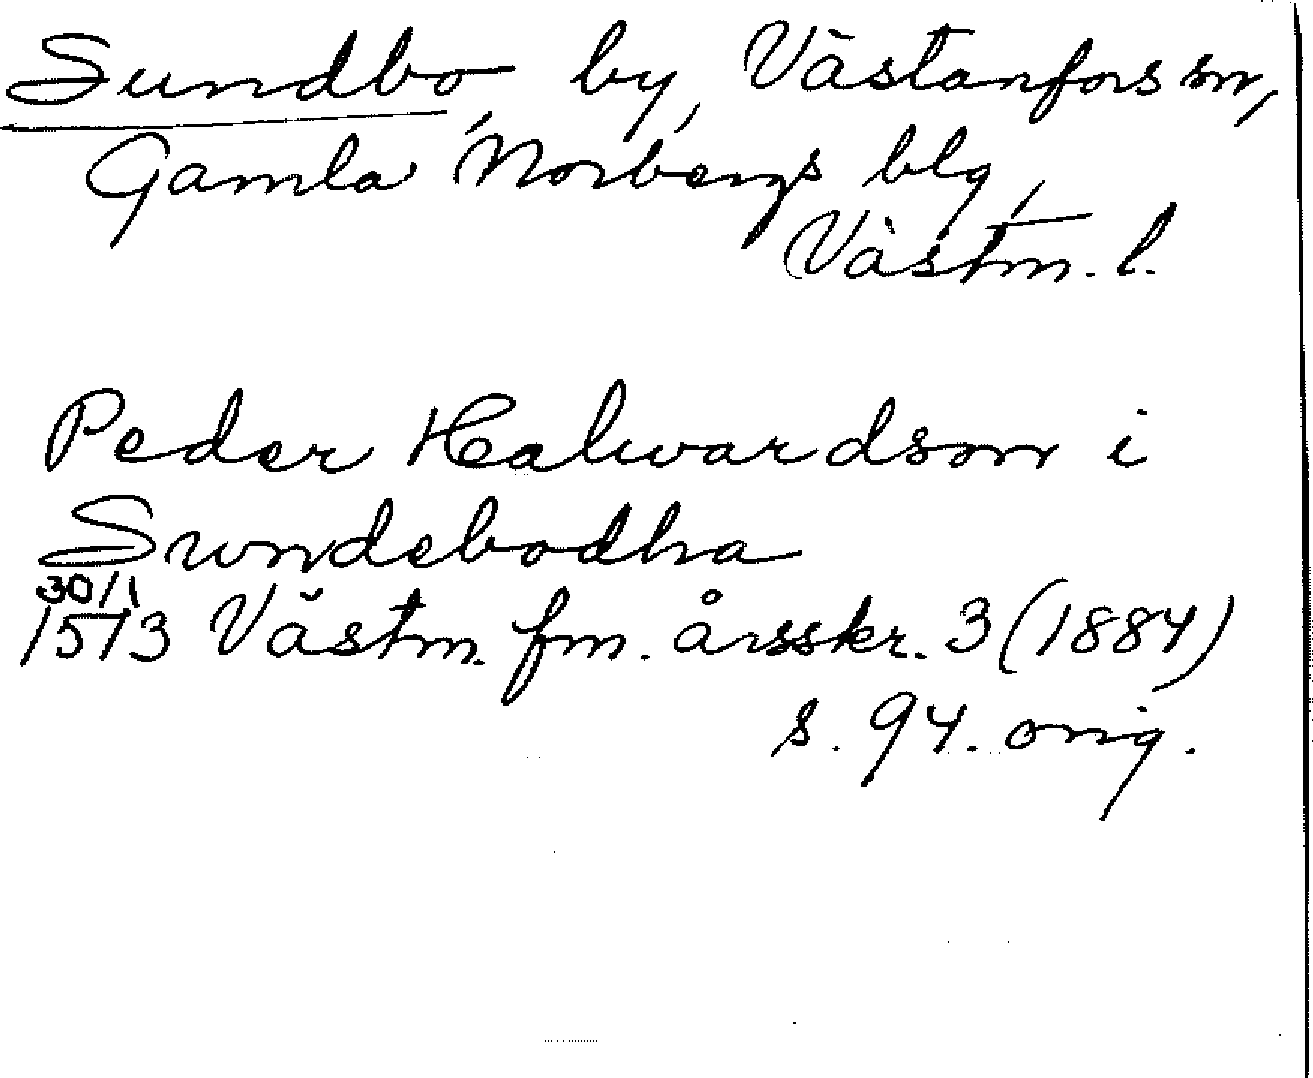 Sundbo, by, Västanfors sn,
Gamla Norbergs blg,
Västm. l.
Peder Halwardson i
Swndebodha
30/1
1513 Västm. fm. årsskr. 3 (1884)
s. 94. orig.